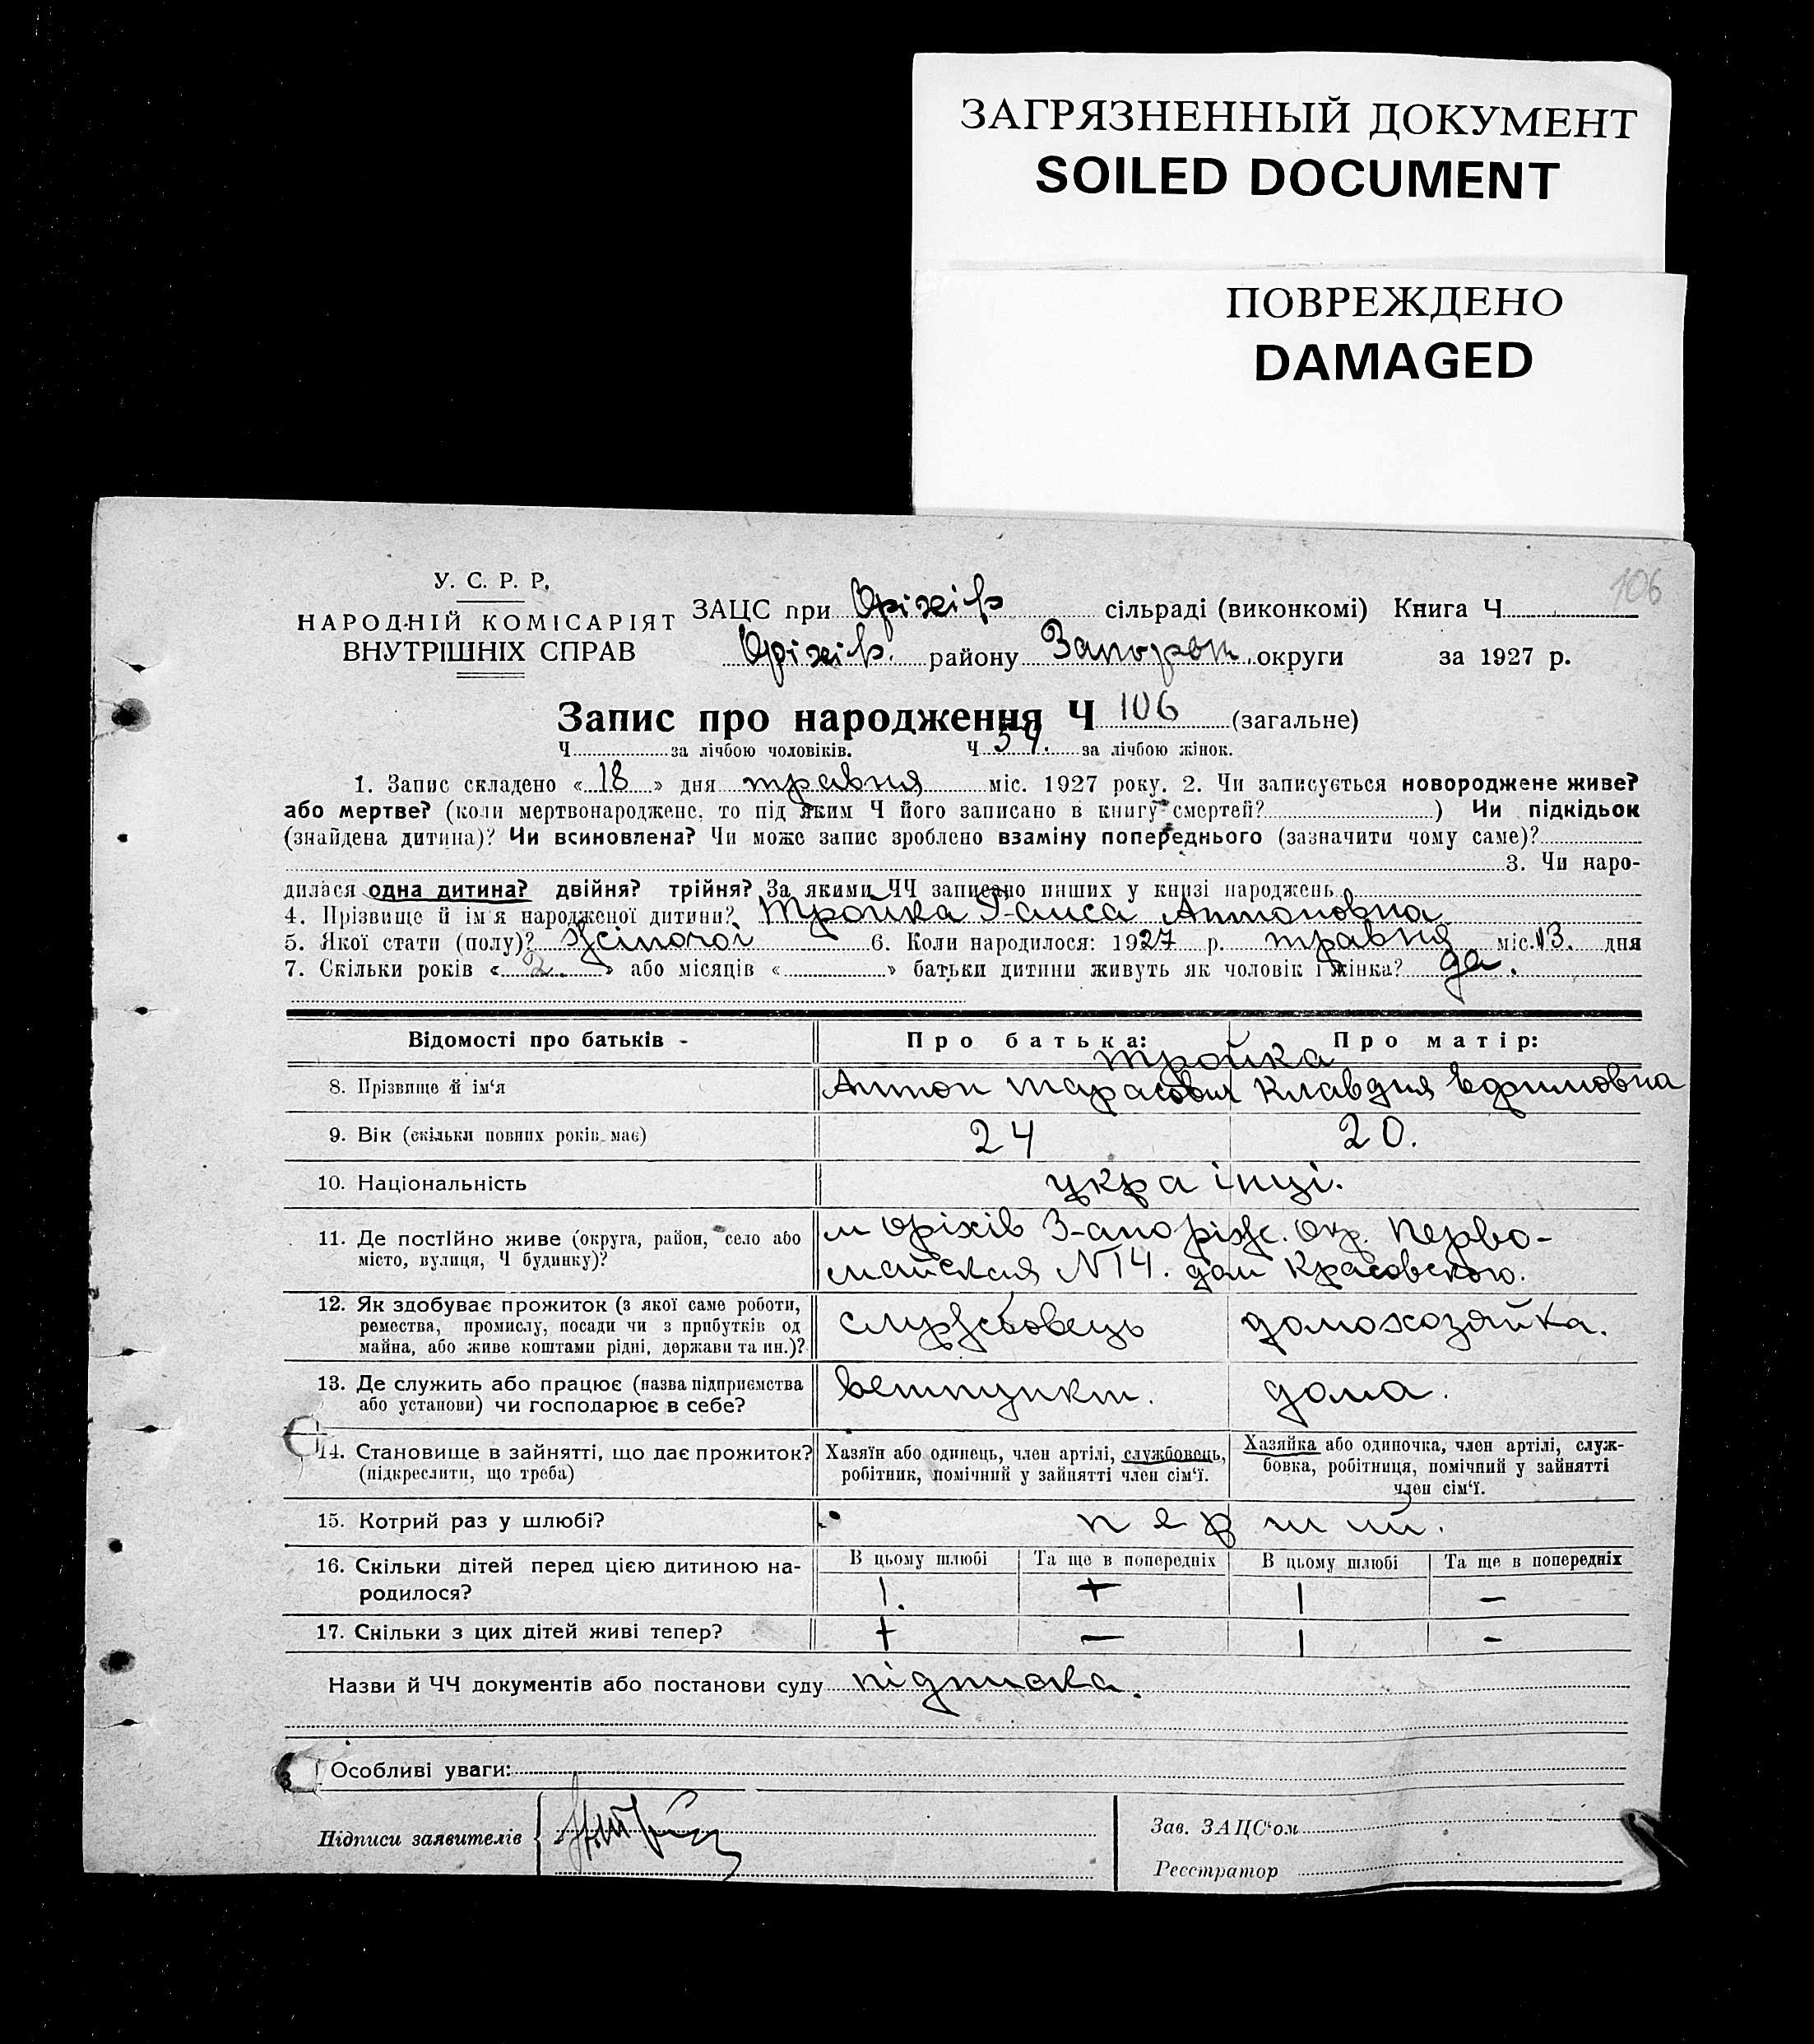 ЗАГРЯЗНЕННЫЙ ДОКУМЕНТ
SOILED DOCUMENT
ПОВРЕЖДЕНО
DAMAGED
106
У. С. Р. Р.
НАРОДНІЙ КОМІСАРІЯТ
ВНУТРІШНІХ СПРАВ
ЗАЦС при Оріхів сільраді (виконкомі) Книга Ч
Оріхів. району Запорож. округи за 1927 р.
Запис про народження Ч 106 (загальне)
Ч за лічбою чоловіків. Ч 54. за лічбою жінок.
1. Запис складено « 18 » дня травня міс. 1927 року. 2. Чи записується новороджене живе?
або мертве? (коли мертвонароджене, то під яким Ч його записано в книгу смертей? ) Чи підкідьок
(знайдена дитина)? Чи всиновлена? Чи може запис зроблено взаміну попереднього (зазначити чому саме)?
3. Чи наро-
дилася одна дитина? двійня? трійня? За якими ЧЧ записано инших у книзі народжень
4. Прізвище й ім'я народженої дитини? Тройка Раиса Антоновна
5. Якої стати (полу)? Жіночої 6. Коли народилося: 1927 р. травня міс. 13. дня
7. Скільки років « 2 » або місяців « » батьки дитини живуть як чоловік і жінка? да.
Відомості про батьків - Про батька: Про матір:
Тройка
8. Прізвище й ім'я Антон Тарасович Клавдия Ефимовна
9. Вік (скільки повних років має) 24 20.
10. Національність українці.
11. Де постійно живе (округа, район, село або
місто, вулиця, Ч будинку)?
м Оріхів Запоріж. Окр. Перво-
майская N 14. дом Красовского.
12. Як здобуває прожиток (з якої саме роботи,
ремества, промислу, посади чи з прибутків од
майна, або живе коштами рідні, держави та ин.)?
службовець домохозяйка.
13. Де служить або працює (назва підприємства
або установи) чи господарює в себе?
ветпункт. дома.
14. Становище в зайнятті, що дає прожиток?
(підкреслити, що треба)
Хазяїн або одинець, член артілі, службовець,
робітник, помічний у зайнятті член сім'ї.
Хазяйка або одиночка, член артілі, служ-
бовка, робітниця, помічний у зайнятті
член сім'ї.
15. Котрий раз у шлюбі? перший.
16. Скільки дітей перед цією дитиною на-
родилося?
В цьому шлюбі Та ще в попередніх В цьому шлюбі Та ще в попередніх
1. + 1 –
17. Скільки з цих дітей живі тепер? + – 1 –
Назви й ЧЧ документів або постанови суду підписка.
Особливі уваги:
Підписи заявителів
Зав. ЗАЦС'ом
Реєстратор